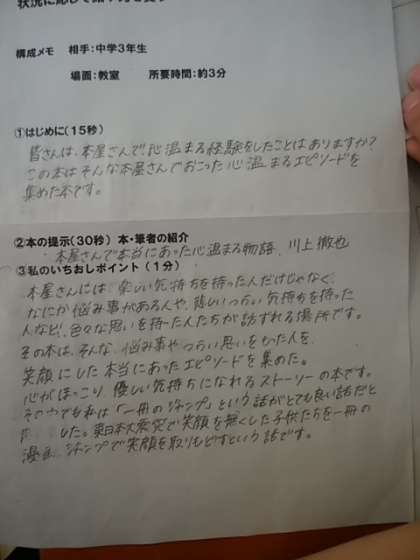 状況に応じて
構成メモ 相手：中学3年生
場面：教室 所要時間：約3分
①はじめに（15秒）
皆さんは、本屋さんで心温まる経験をしたことはありますか？
この本はそんな本屋さんでおこった心温まるエピソードを
集めた本です。
②本の提示（30秒） 本・筆者の紹介
本屋さんで本当にあった心温まる物語、川上徹也
③私のいちおしポイント（1分）
本屋さんには、楽しい気持ちを持った人だけじゃなく、
なにか悩み事がある人や、悲しいつらい気持ちを持った
人など、色々な思いを持った人たちが訪ずれる場所です。
その本は、そんな、悩み事やつらい思いをもった人を、
笑顔にした本当にあったエピソードを集めた。
心がほっこり、優しい気持ちになれるストーリーの本です。
その中でも私は「一冊のジャンプ」という話がとても良い話だと
した。東日本大震災で笑顔を無くした子供たちを一冊の
漫画、ジャンプで笑顔を取りもどすという話です。